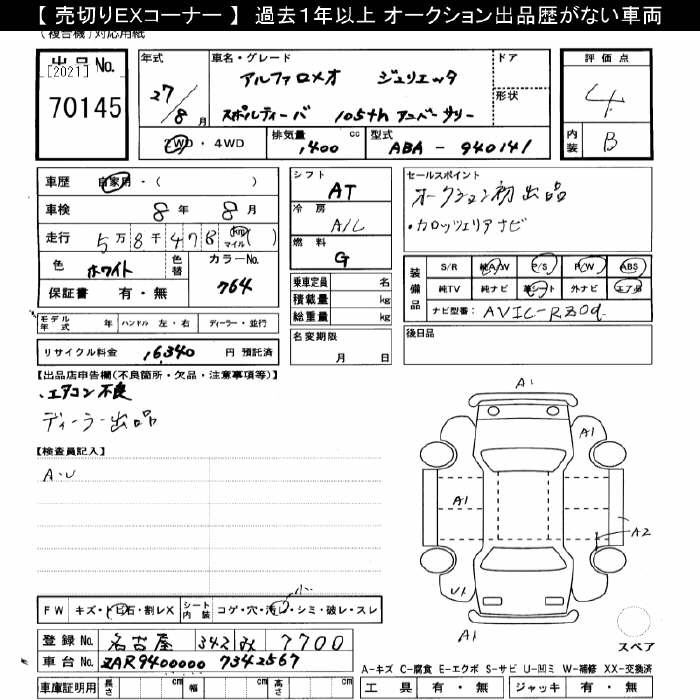 【 売切りEXコーナー 】 過去1年以上 オークション出品歴がない車両
(複合機)対応用紙
出品 No.
[2021]
70145
年式
27/8 月
車名・グレード
アルファロメオ ジュリエッタ
スポルティーバ 105th アニバーサリー
ドア
形状
2WD ・ 4WD
排気量
1,400 cc
型式
ABA - 940141
評価点
4
内装
B
車歴 自家用・( )
車検 8 年 8 月
走行 5万8千478 km マイル ( )
色 ホワイト
色替
カラーNo.
764
保証書 有・無
シフト
AT
冷房
A/C
燃料
G
乗車定員 名
積載量 kg
総重量 kg
名変期限
月 日
セールスポイント
オークション初出品
・カロッツェリアナビ
装備品
S/R 純A/W P/S P/W ABS
純TV 純ナビ 革シート 外ナビ エアB
ナビ型番: AVIC-RZ09
後日品
モデル年式 年 ハンドル 左・右 ディーラー・並行
リサイクル料金 16,340 円 預託済
【出品店申告欄(不良箇所・欠品・注意事項等)】
・エアコン不良
ディーラー出品
【検査員記入】
A・U
A1
A1
A1
A2
U1
A1
スペア
小
FW キズ・トビ石・割レX
シート内装 コゲ・穴・汚レ・シミ・破レ・スレ
登録 No. 名古屋 342 み 7700
車台 No. ZAR9400000 7342567
車庫証明用 長さ cm 幅 cm 高さ cm
A-キズ C-腐食 E-エクボ S-サビ U-凹ミ W-補修 XX-交換済
工具 有・無 ジャッキ 有・無